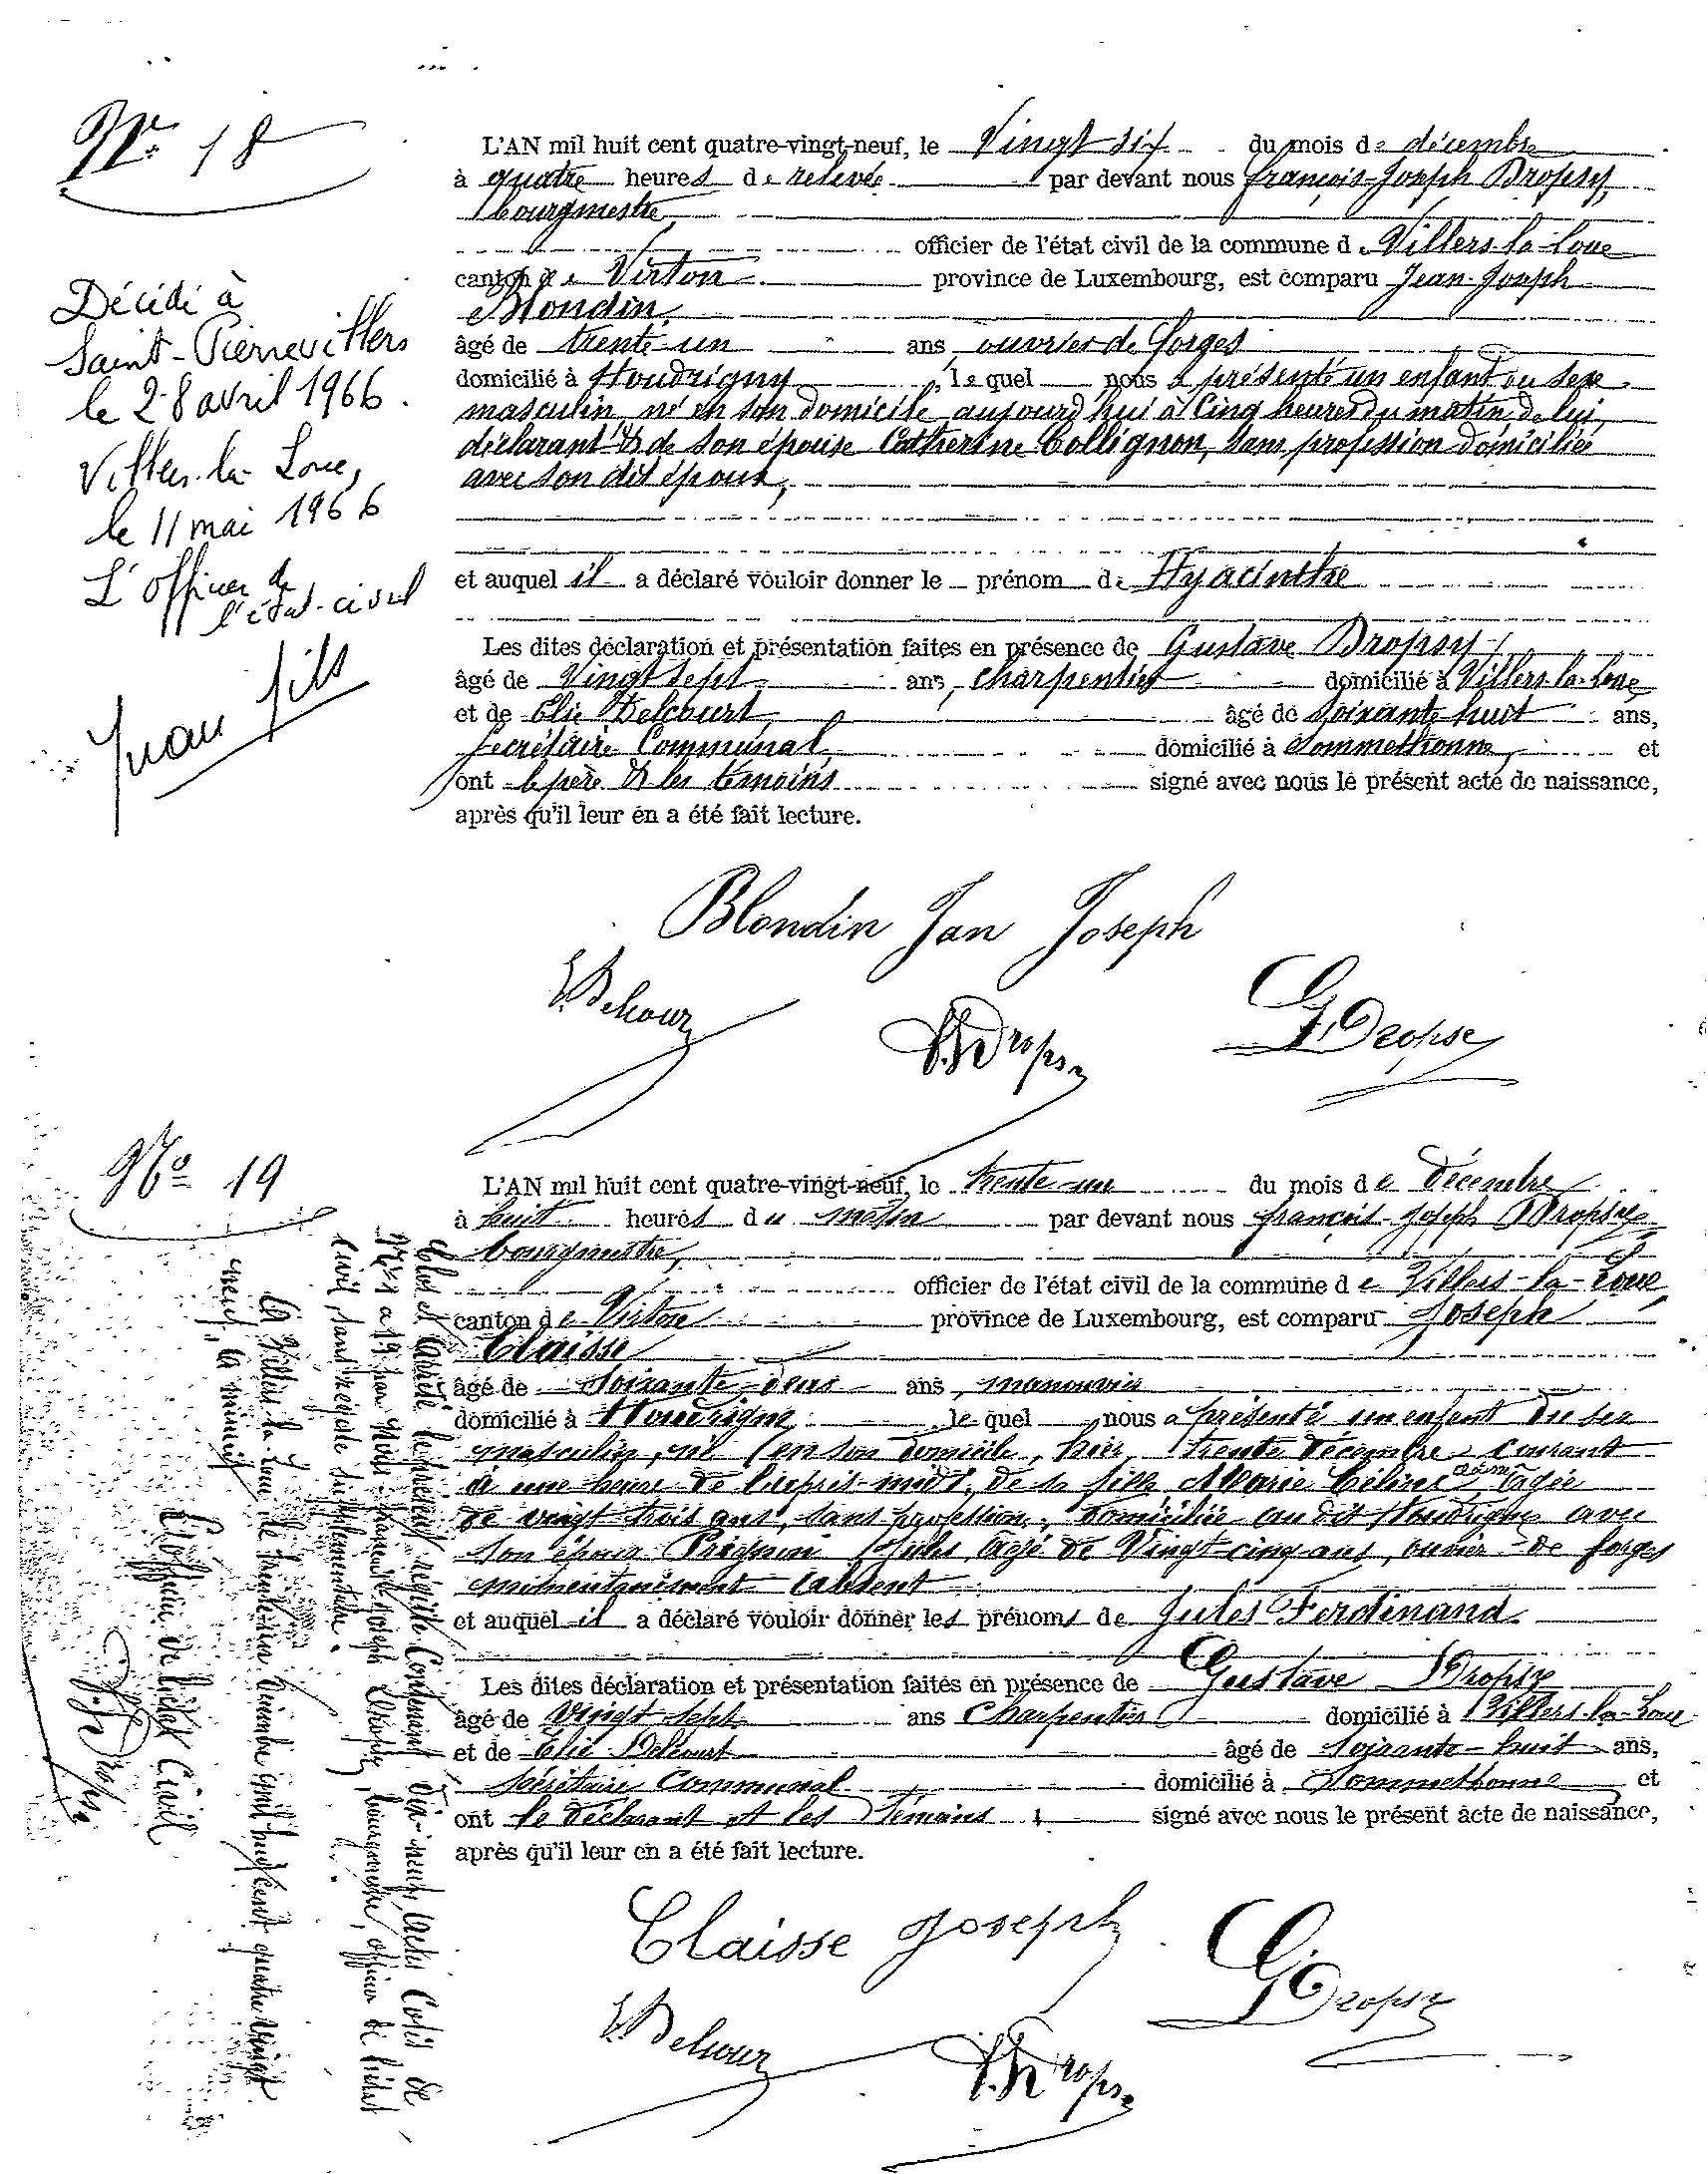 No 18
L'AN mil huit cent quatre-vingt-neuf, le Vingt six du mois de décembre
à quatre heures de relevée par devant nous françois-Joseph Dropsy,
bourgmestre,
officier de l'état civil de la commune de Villers-la-Loue
canton de Virton province de Luxembourg, est comparu Jean-Joseph
Blondin,
âgé de trente-un ans, ouvrier de forges
domicilié à Houdrigny, lequel nous a présenté un enfant du sexe
masculin né en son domicile aujourd'hui à Cinq heures du matin de lui
déclarant & de son épouse Catherine Collignon, sans profession domiciliée
avec son dit époux,
et auquel il a déclaré vouloir donner le prénom de Hyacinthe
Les dites déclaration et présentation faites en présence de Gustave Dropsy,
âgé de Vingt sept ans, charpentier domicilié à Villers-la-Loue,
et de Elie Delcourt, âgé de Soixante huit ans,
secrétaire Communal, domicilié à Sommethonne, et
ont le père & les témoins signé avec nous le présent acte de naissance,
après qu'il leur en a été fait lecture.
Décédé à
Saint-Pierrevillers
le 28 avril 1966.
Villers-la-Loue,
le 11 mai 1966
L'officier de
l'état-civil
Blondin Jan Joseph
E. Delcour
F. J. Dropsy
G. Dropsy
No 19
L'AN mil huit cent quatre-vingt-neuf, le trente-un du mois de Décembre
à huit heures du matin par devant nous françois-Joseph Dropsy
bourgmestre,
officier de l'état civil de la commune de Villers-la-Loue
canton de Virton province de Luxembourg, est comparu Joseph
Claisse
âgé de Soixante-deux ans, manouvrier
domicilié à Houdrigny, lequel nous a présenté un enfant du sexe
masculin, né en son domicile, hier, trente Décembre courant
à une heure de l'après-midi, de sa fille Marie Céline âgée
de vingt trois ans, sans profession, domiciliée au dit Houdrigny avec
son époux Prignon Jules, âgé de Vingt-cinq ans, ouvrier de forges
momentanément absent
et auquel il a déclaré vouloir donner les prénoms de Jules Ferdinand
Les dites déclaration et présentation faites en présence de Gustave Dropsy
âgé de Vingt sept ans Charpentier domicilié à Villers-la-Loue
et de Elie Delcourt âgé de Soixante-huit ans,
Sécrétaire Communal domicilié à Sommethonne et
ont le déclarant et les Témoins signé avec nous le présent acte de naissance,
après qu'il leur en a été fait lecture.
Clos et arrêté le présent régistre Contenant dix-neuf actes Cotés de
No 1 a 19 par Nous françois-Joseph Dropsy, bourgmestre, officier de l'état
Civil, sans régistre supplémentaire.
A Villers-la-Loue le trente-un Décembre mil huit Cent quatre Vingt
neuf, à minuit
L'officier de l'état Civil
F. J. Dropsy
Claisse Joseph
E. Delcour
F. J. Dropsy
G. Dropsy